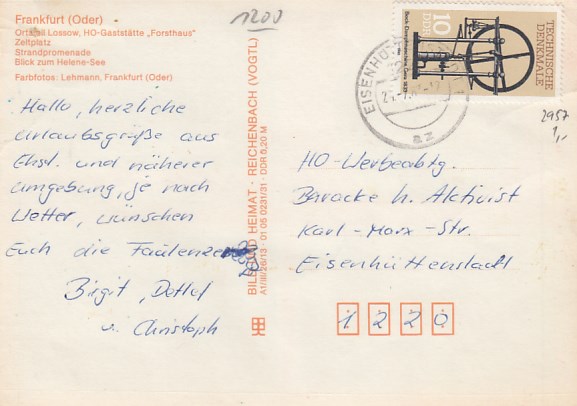 Frankfurt (Oder)
Ortsteil Lossow, HO-Gaststätte „Forsthaus"
Zeltplatz
Strandpromenade
Blick zum Helene-See
Farbfotos: Lehmann, Frankfurt (Oder)
1200
Hallo, herzliche
Urlaubsgrüße aus
Ehst. und näherer
Umgebung, je nach
Wetter, wünschen
Euch die Faulenzer
Birgit, Detlef
u. Christoph
BILD UND HEIMAT · REICHENBACH (VOGTL)
A1/III/26/13 01 05 0231/31 · DDR 0,20 M
EISENHÜ
az
10
DDR
TECHNISCHE
DENKMALE
2957
1,-
HO-Werbeabtg.
Baracke h. Aktivist
Karl-Marx-Str.
Eisenhüttenstadt
1 2 2 0